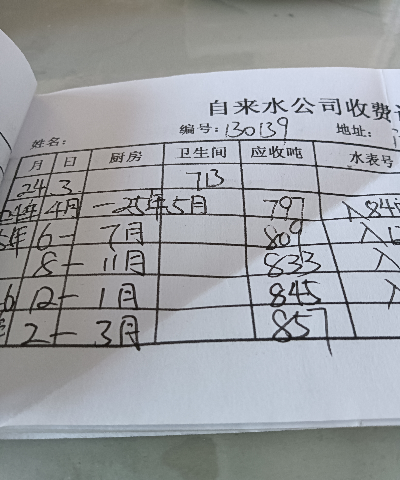 自来水公司收费
姓名: 编号:130139 地址:
月 日 厨房 卫生间 应收吨 水表号
24 3 713
24年4月-25年5月 797 入84
5年 6-7月 809 入
8-11月 833 入
6 12-1月 845 入
2-3月 857